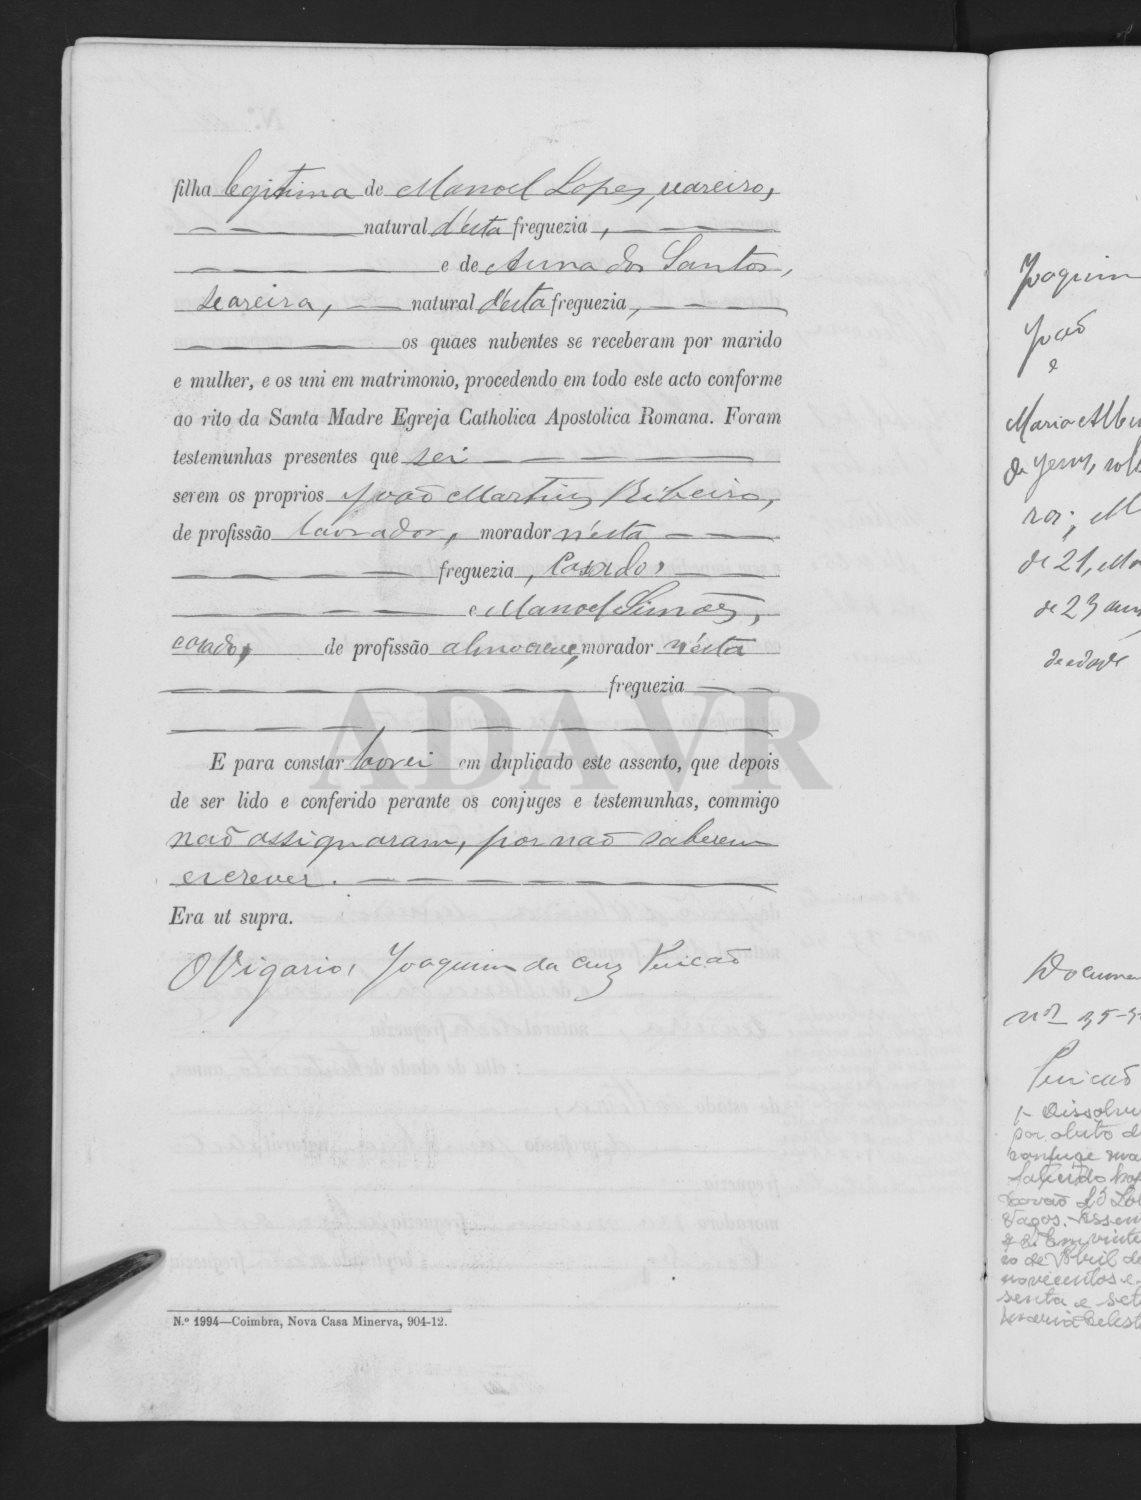 filha legitima de Manoel Lopes, seareiro,
natural d'esta freguezia,
e de Anna dos Santos,
seareira, natural d'esta freguezia,
os quaes nubentes se receberam por marido
e mulher, e os uni em matrimonio, procedendo em todo este acto conforme
ao rito da Santa Madre Egreja Catholica Apostolica Romana. Foram
testemunhas presentes que sei
serem os proprios João Martins Ribeiro,
de profissão lavrador, morador n'esta
freguezia, casado,
e Manoel Simões,
casado, de profissão almocreve, morador n'esta
freguezia
ADAVR
E para constar lavrei em duplicado este assento, que depois
de ser lido e conferido perante os conjuges e testemunhas, commigo
não assignaram, por não saberem
escrever.
Era ut supra.
O Vigario, Joaquim da Cruz Pericão
N.º 1994—Coimbra, Nova Casa Minerva, 904-12.
Joaquim
João
e
Maria
de Jesus,
de 21,
de 23
de edade
Pericão
1-
por obito
conjuge
de Abril
novecentos e
senta e